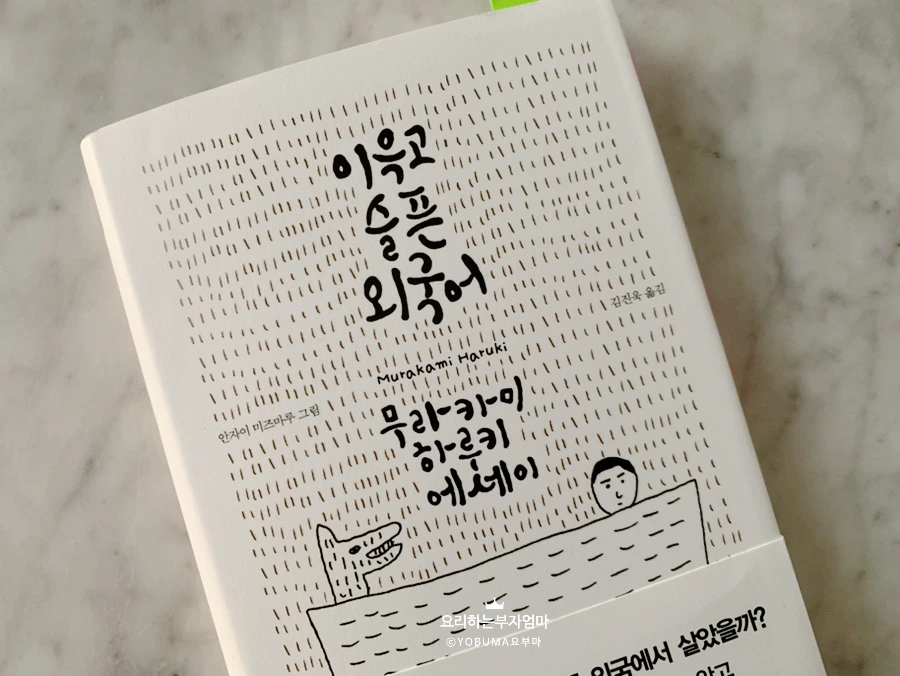 이윽고
슬픈
외국어
김진욱 옮김
Murakami Haruki
안자이 미즈마루 그림
무라카미
하루키
에세이
요리하는부자엄마
©YOBUMA요부마
외국에서 살았을까?
않고